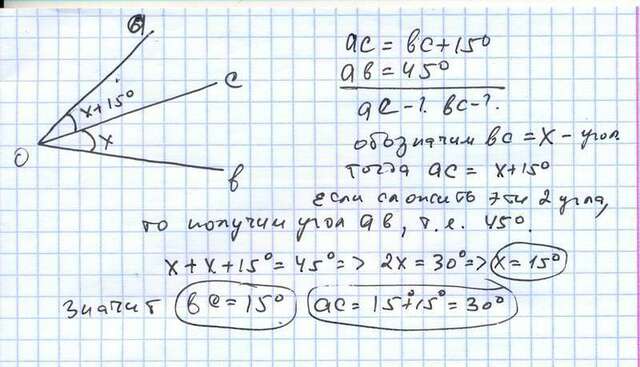 a
c
x+15°
x
O
b
ac = bc+15°
ab = 45°
ac-? bc-?
обозначим bc = x - угол
тогда ac = x+15°
если сложить эти 2 угла,
то получим угол ab, т.е. 45°.
x+x+15° = 45° => 2x = 30° => x = 15°
Значит bc = 15° ac = 15°+15° = 30°